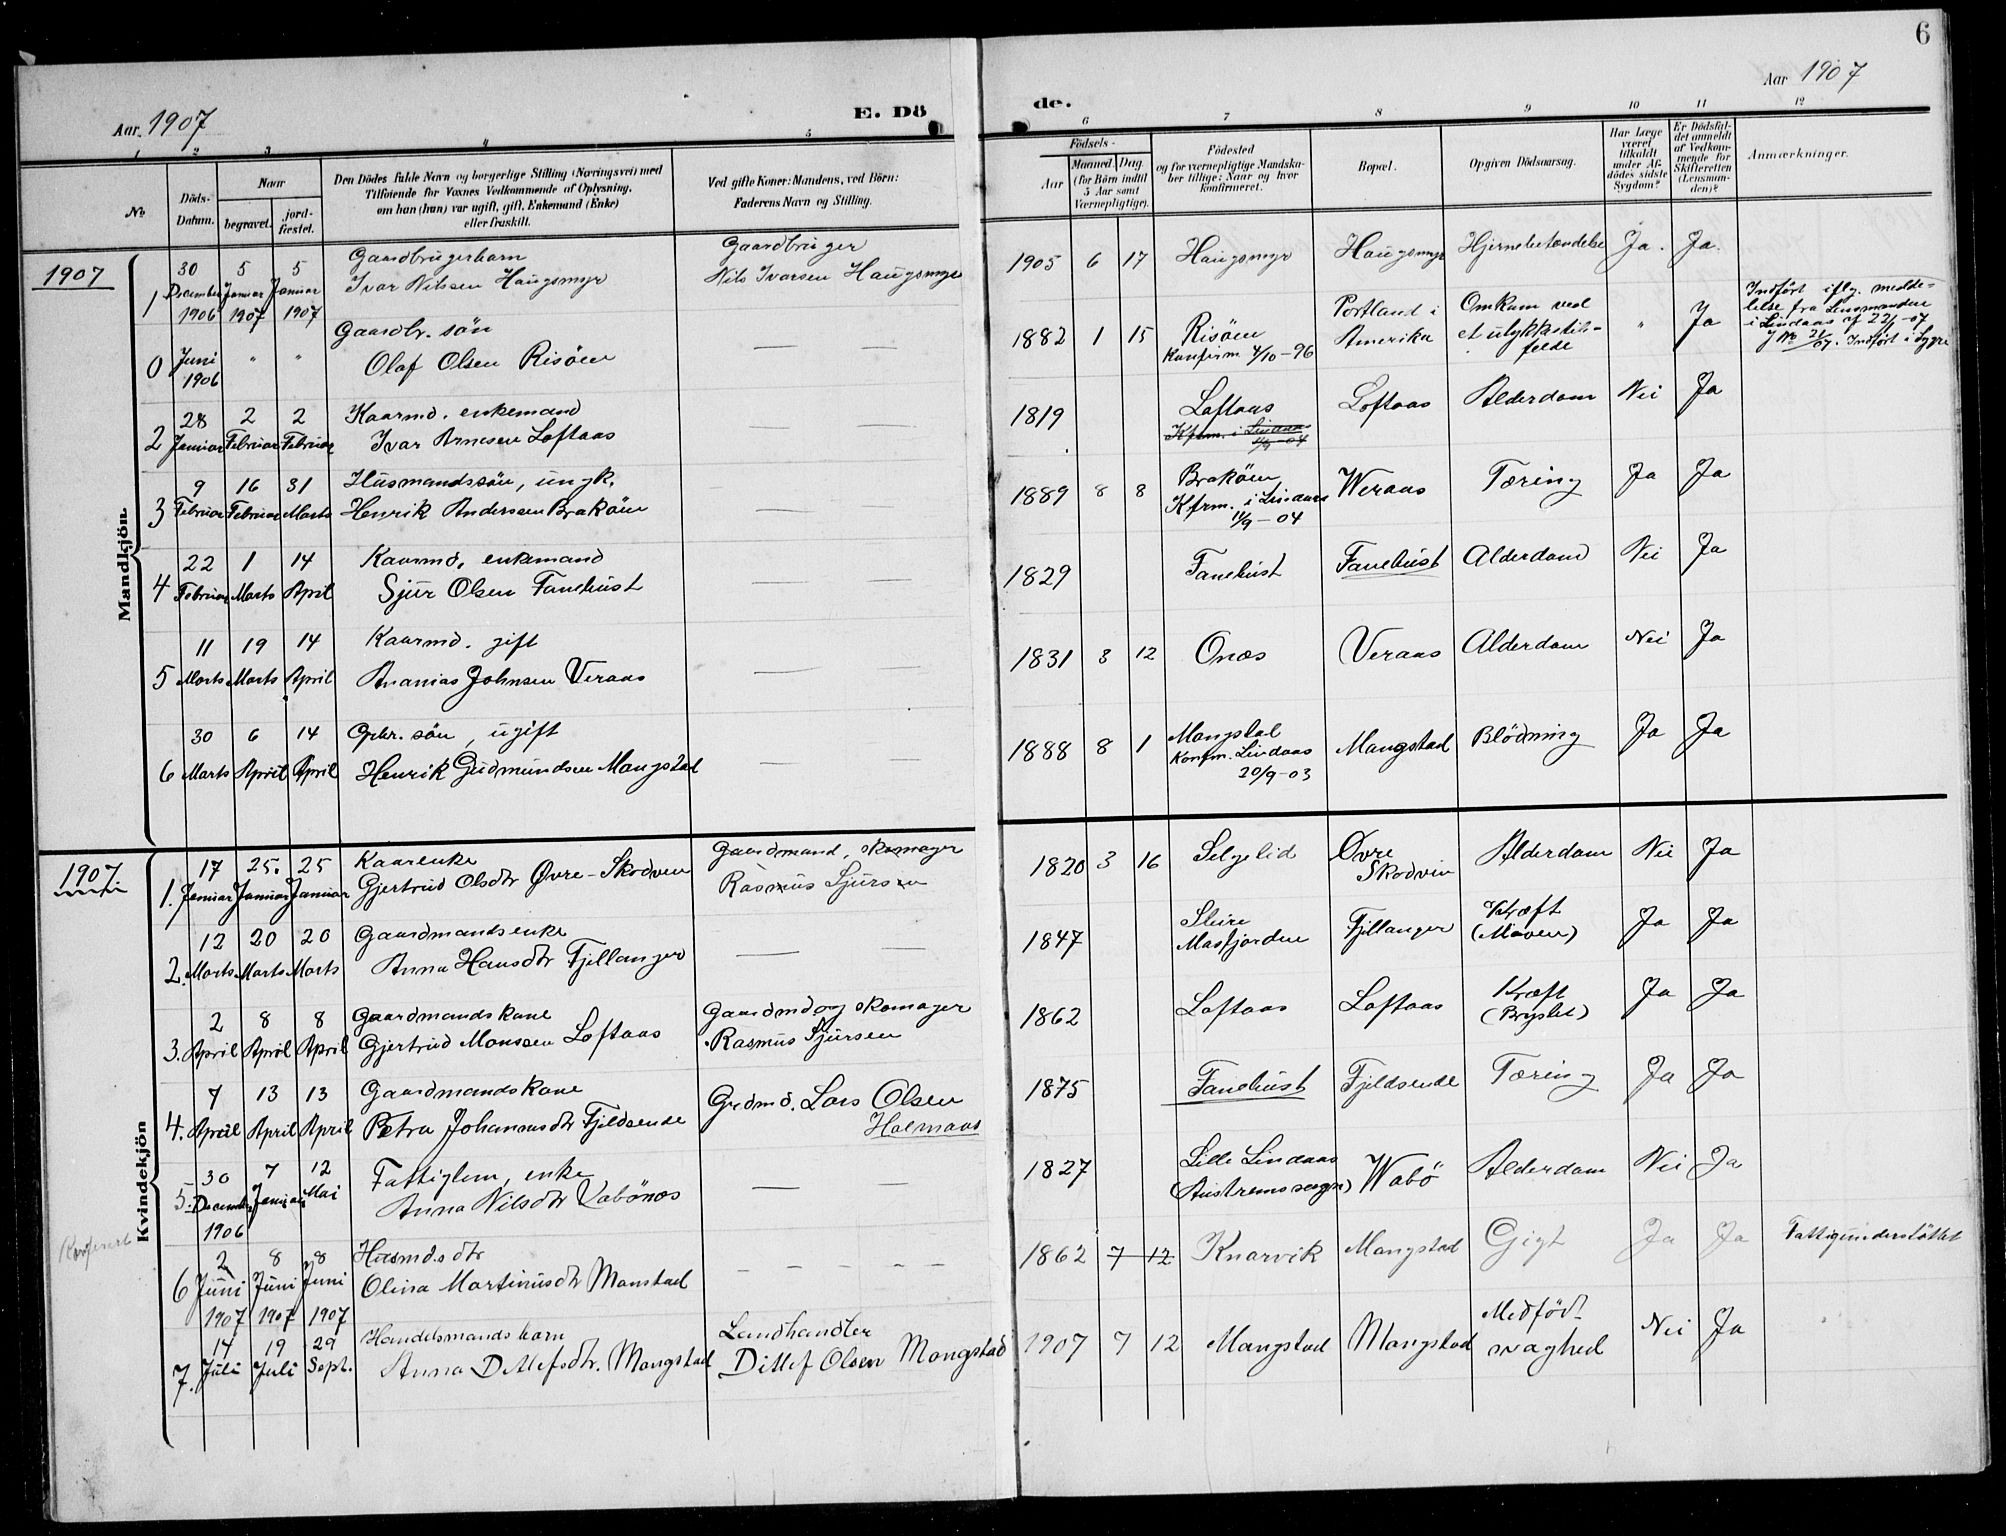 6
Aar 1907
Aar 1907
E. Dö
de.
1 2 3 4 5
6 7 8 9 10 11 12
No
Döds-
Datum.
Naar
begravet.
jord-
fæstet.
Den Dödes fulde Navn og borgerlige Stilling (Næringsvei) med
Tilföiende for Voxnes Vedkommende af Oplysning,
om han (hun) var ugift, gift, Enkemand (Enke)
eller fraskilt.
Ved gifte Koner: Mandens, ved Börn:
Faderens Navn og Stilling.
Födsels-
Aar
Maaned
Dag
(for Börn indtil
5 Aar samt
Værnepligtige).
Födested
og for værnepligtige Mandska-
ber tillige: Naar og hvor
konfirmeret.
Bopæl.
Opgiven Dödsaarsag.
Har Læge
været
tilkaldt
under Af-
dödes sidste
Sygdom?
Er Dödsfal-
det anmeldt
af Vedkom-
mende for
Skifteretten
(Lensman-
den)?
Anmærkninger.
1907
Mandkjön.
30 5 5 Gaardbrugerbarn Gaardbruger
1 December Januar Januar Ivar Nilsen Haugsmyr Nils Ivarsen Haugsmyr 1905 6 17 Haugsmyr Haugsmyr Hjernebetændelse Ja. Ja.
1906 1907 1907
Gaardbr. sön
0 Juni " " Olaf Olsen Risöen — — 1882 1 15 Risöen Portland i Amerika Omkom ved et ulykkestil-felde " Ja
1906
Konfirm 4/10-96
Indført iflg. medde-
lelse fra Lensmanden
i Lindaas af 22/1-07
28 2 2 Kaarmd. enkemand
2 Januar Februar Februar Ivar Arnesen Loftaas — — 1819 Loftaas Loftaas Alderdom Nei Ja
Kfrm. i Lindaas
11/9-04
9 16 31 Husmandssön, ungk.
3 Februar Februar Marts Henrik Anderssen Braköen — — 1889 8 8 Braköen Weraas Tæring Ja Ja
Kfrm. i Lindaas
11/9-04
22 1 14 Kaarmd. enkemand
4 Februar Marts April Sjur Olsen Fanebust — — 1829 Fanebust Fanebust Alderdom Nei Ja
11 19 14 Kaarmd. gift
5 Marts Marts April Ananias Johnsen Veraas — — 1831 3 12 Onæs Veraas Alderdom Nei Ja
30 6 14 Gbr. sön, ugift
6 Marts April April Henrik Gudmundsen Mangstad — — 1888 8 1 Mangstad Mangstad Blödning Ja Ja
Konfrm. Lindaas
20/9-03
1907
Kvindekjön
17 25. 25 Kaarenke Gaardmand, skomager
1. Januar Januar Januar Gjertrud Olsdtr Øvre-Skodven Rasmus Sjursen 1820 3 16 Selgelid Øvre Skodvin Alderdom Nei Ja
12 20 20 Gaardmandsenke
2. Marts Marts Marts Anna Hansdtr Fjellanger — — 1847 Sleire Masfjorden Fjellanger Kræft (Maven) Ja Ja
2 8 8 Gaardmandskone Gaardmd og skomager
3. April April April Gjertrud Monssen Loftaas Rasmus Sjursen 1862 Loftaas Loftaas Kræft (Brystet) Ja Ja
7 13 13 Gaardmandskone
4. April April April Petra Johannesdtr Fjeldsende Grdmd. Lars Olsen 1875 Fanebust Fjeldsende Tæring Ja Ja
Holmaas
30 7 12 Fattiglem, enke
5. December Januar Mai Anna Nilsdtr Vabönæs — — 1827 Lille Lindaas Wabö Alderdom Nei Ja
1906
2 8 8 Husmdsdtr
6 Juni Juni Juni Olina Martinusdtr Manstad - - - - - 1862 7 12 Knarvik Mangstad Gigt Ja Ja Fattigunderstöttet
1907 1907 1907
14 19 29 Handelsmandsbarn Landhandler
7. Juli Juli Sept. Anna Ditlefsdtr. Mangstad Ditlef Olsen Mongstad 1907 7 12 Mangstad Mangstad Medföd. svaghed Nei Ja